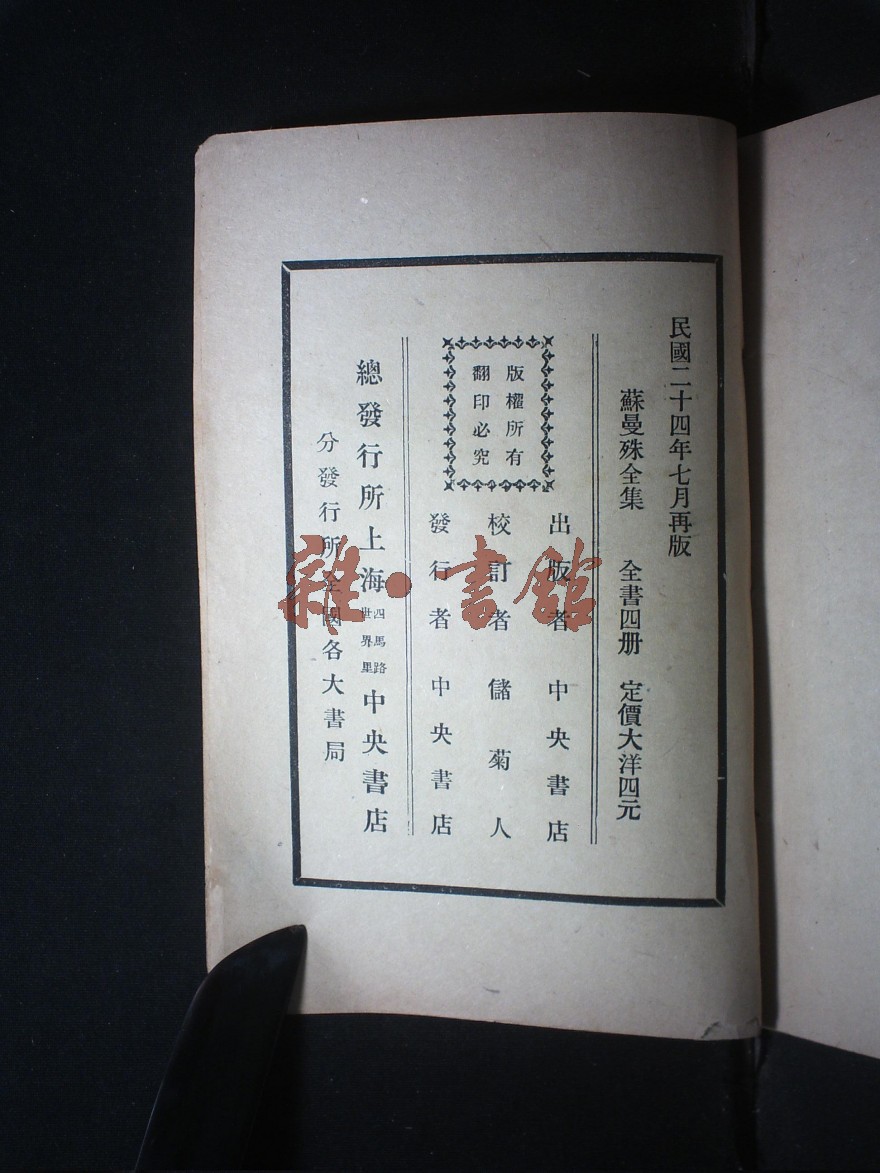 民國二十四年七月再版
蘇曼殊全集 全書四册 定價大洋四元
版權所有
翻印必究
出版者 中央書店
校訂者 儲菊人
發行者 中央書店
總發行所上海四馬路世界里中央書店
分發行所全國各大書局
雜·書館